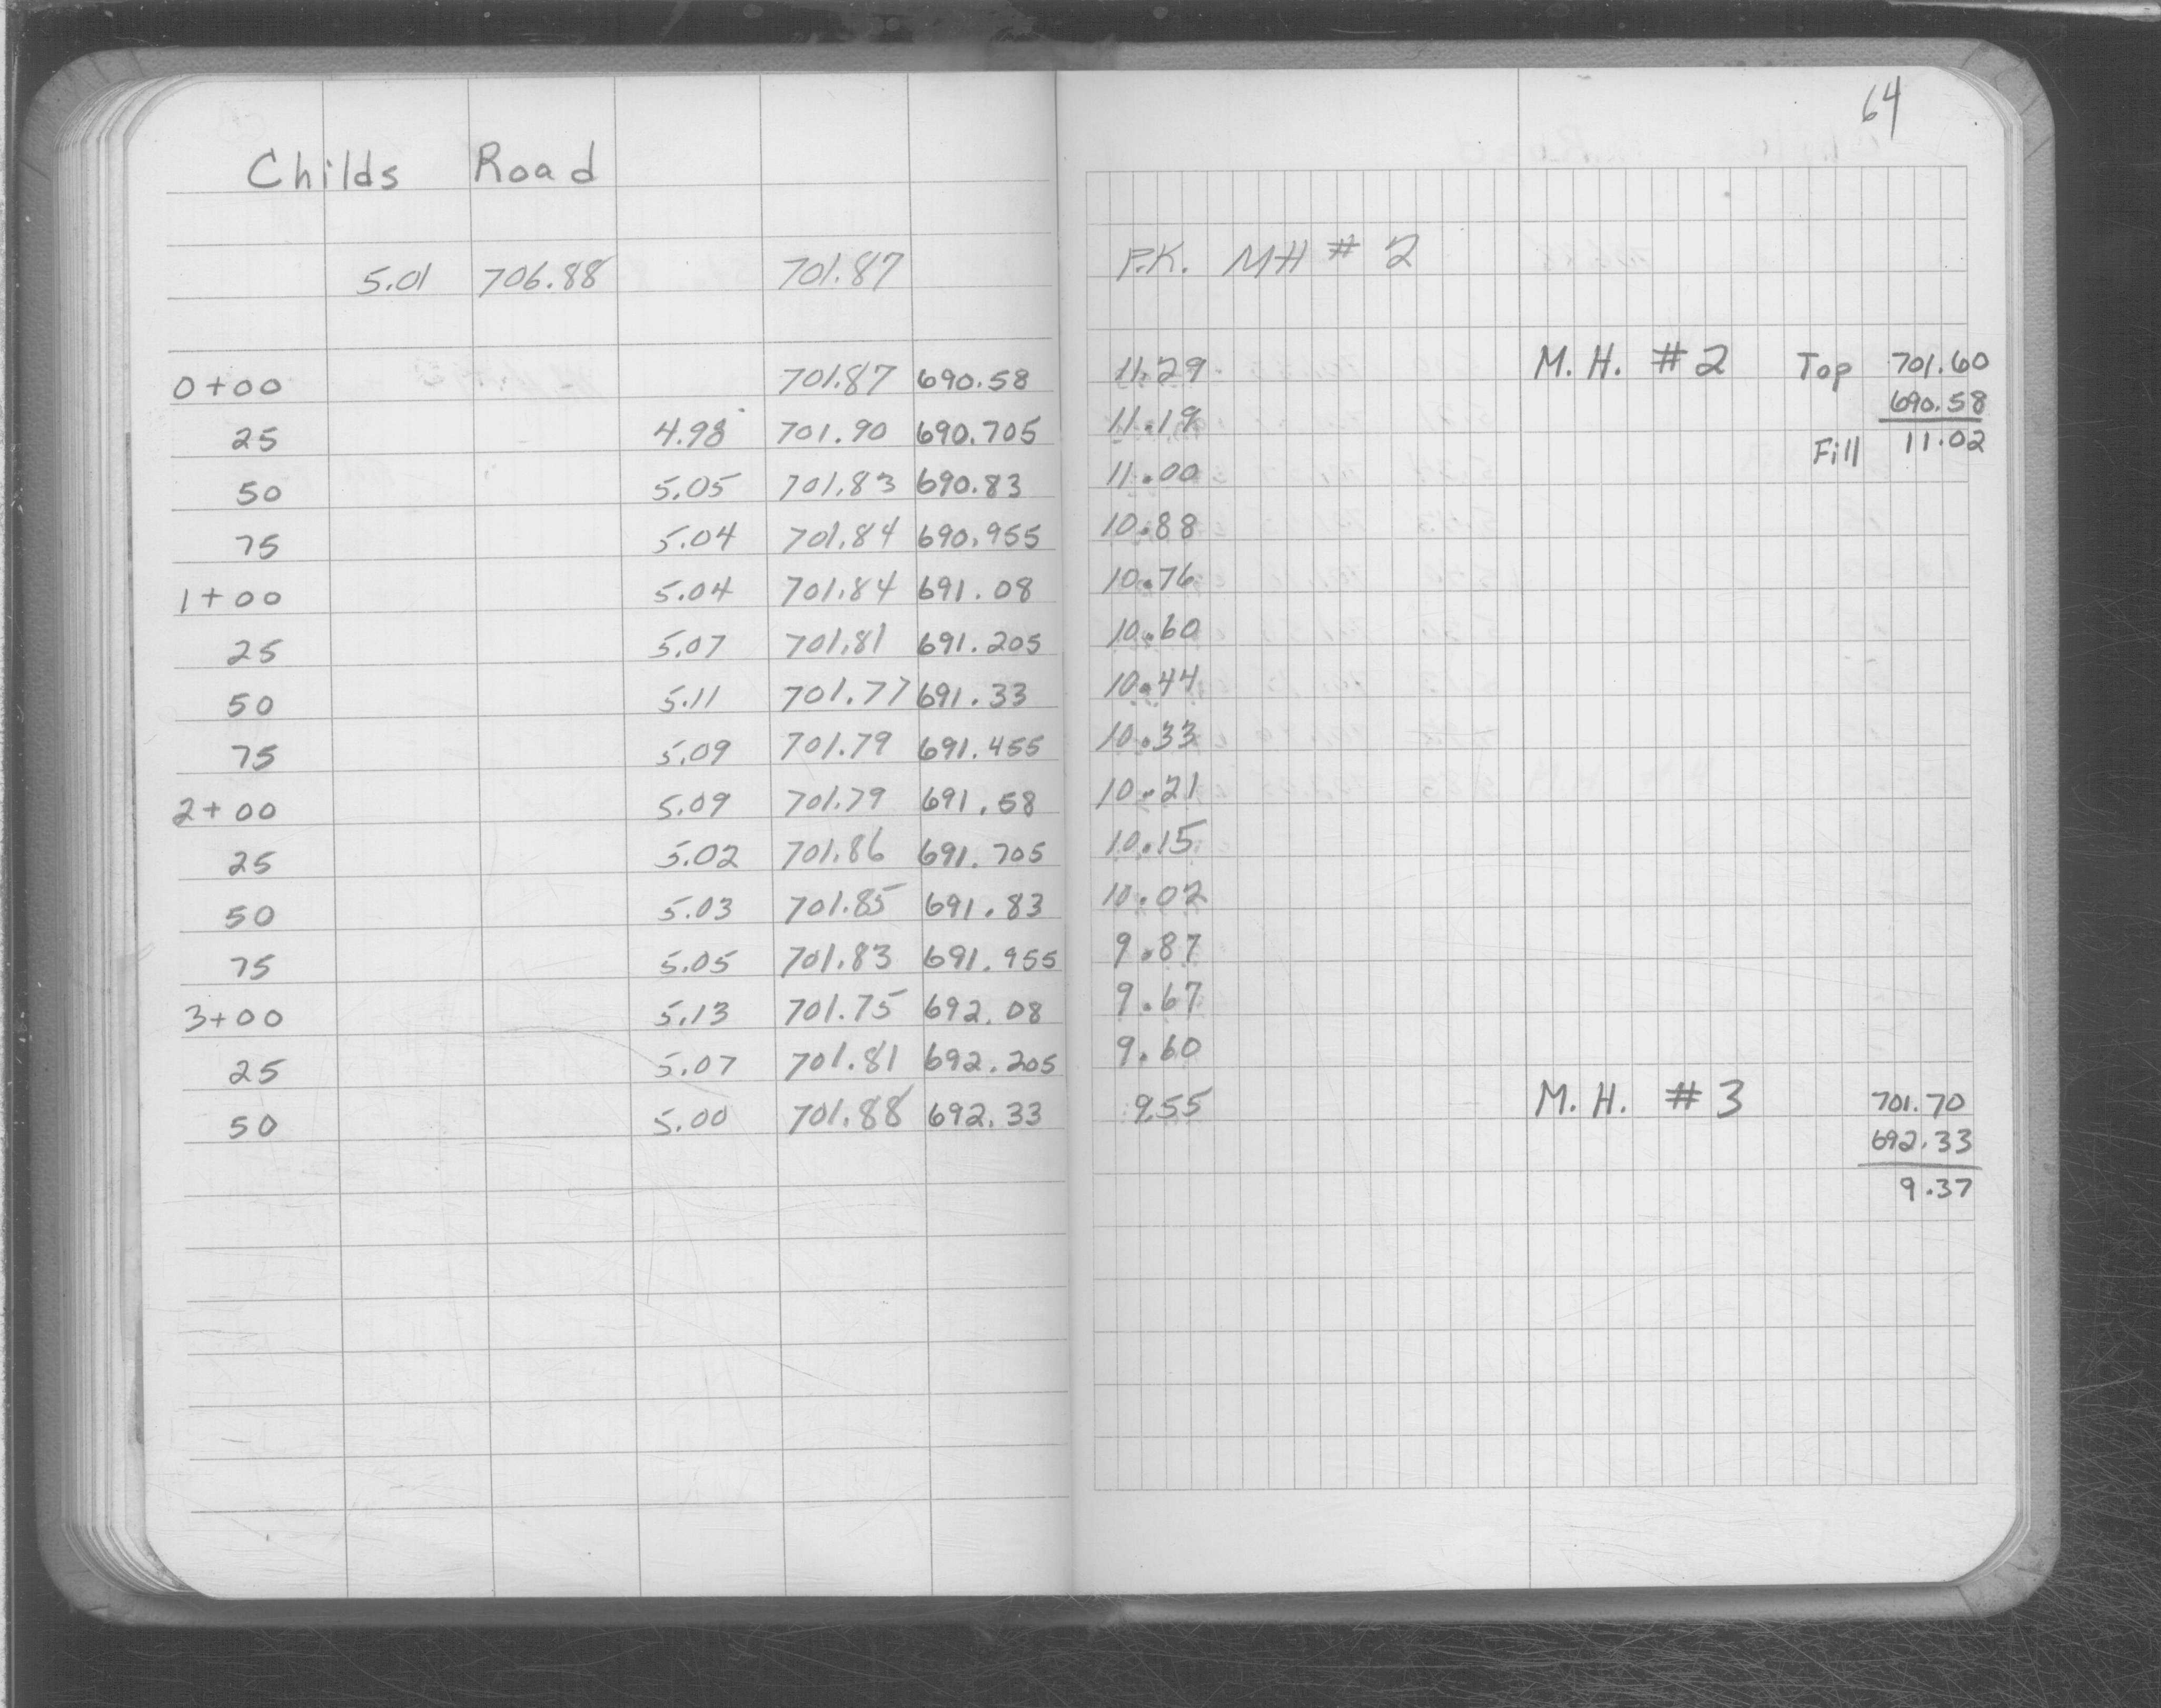 64
Childs Road
5.01 706.88 701.87 P.K. MH # 2
0+00 701.87 690.58 11.29 M.H. #2 Top 701.60
690.58
25 4.98 701.90 690.705 11.19 Fill 11.02
50 5.05 701.83 690.83 11.00
75 5.04 701.84 690.955 10.88
1+00 5.04 701.84 691.08 10.76
25 5.07 701.81 691.205 10.60
50 5.11 701.77 691.33 10.44
75 5.09 701.79 691.455 10.33
2+00 5.09 701.79 691.58 10.21
25 5.02 701.86 691.705 10.15
50 5.03 701.85 691.83 10.02
75 5.05 701.83 691.955 9.87
3+00 5.13 701.75 692.08 9.67
25 5.07 701.81 692.205 9.60
50 5.00 701.88 692.33 9.55 M.H. #3 701.70
692.33
9.37